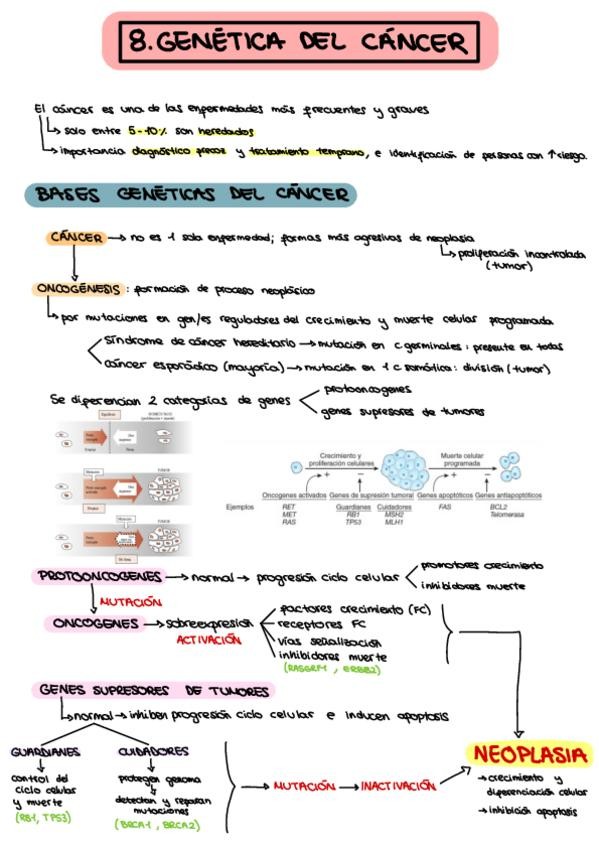 8. GENÉTICA DEL CÁNCER
El cáncer es una de las enfermedades más frecuentes y graves
↳ solo entre 5-10% son heredados
↳ importancia diagnóstico precoz y tratamiento temprano, e identificación de personas con ↑riesgo.
BASES GENÉTICAS DEL CÁNCER
CÁNCER → no es 1 sola enfermedad; formas más agresivas de neoplasia
↳ proliferación incontrolada
(tumor)
ONCOGÉNESIS : formación de proceso neoplásico
↳ por mutaciones en gen/es reguladores del crecimiento y muerte celular programada
síndrome de cáncer hereditario → mutación en c germinales : presente en todas
cáncer esporádico (mayoría) → mutación en 1 c somática : división (tumor)
Se diferencian 2 categorías de genes
protooncogenes
genes supresores de tumores
Crecimiento y
proliferación celulares
Muerte celular
programada
+ − + −
Oncogenes activados Genes de supresión tumoral Genes apoptóticos Genes antiapoptóticos
Ejemplos RET Guardianes Cuidadores FAS BCL2
MET RB1 MSH2 Telomerasa
RAS TP53 MLH1
TUMOR
TUMOR
PROTOONCOGENES → normal → progresión ciclo celular
promotores crecimiento
inhibidores muerte
MUTACIÓN
ONCOGENES → sobreexpresión
ACTIVACIÓN
factores crecimiento (FC)
receptores FC
vías señalización
inhibidores muerte
(RASGRF1 , ERBB2)
GENES SUPRESORES DE TUMORES
↳ normal → inhiben progresión ciclo celular e inducen apoptosis
GUARDIANES
control del
ciclo celular
y muerte
(RB1, TP53)
CUIDADORES
protegen genoma
detectan y reparan
mutaciones
(BRCA1 , BRCA2)
→ MUTACIÓN → INACTIVACIÓN
NEOPLASIA
→ crecimiento y
diferenciación celular
→ inhibición apoptosis